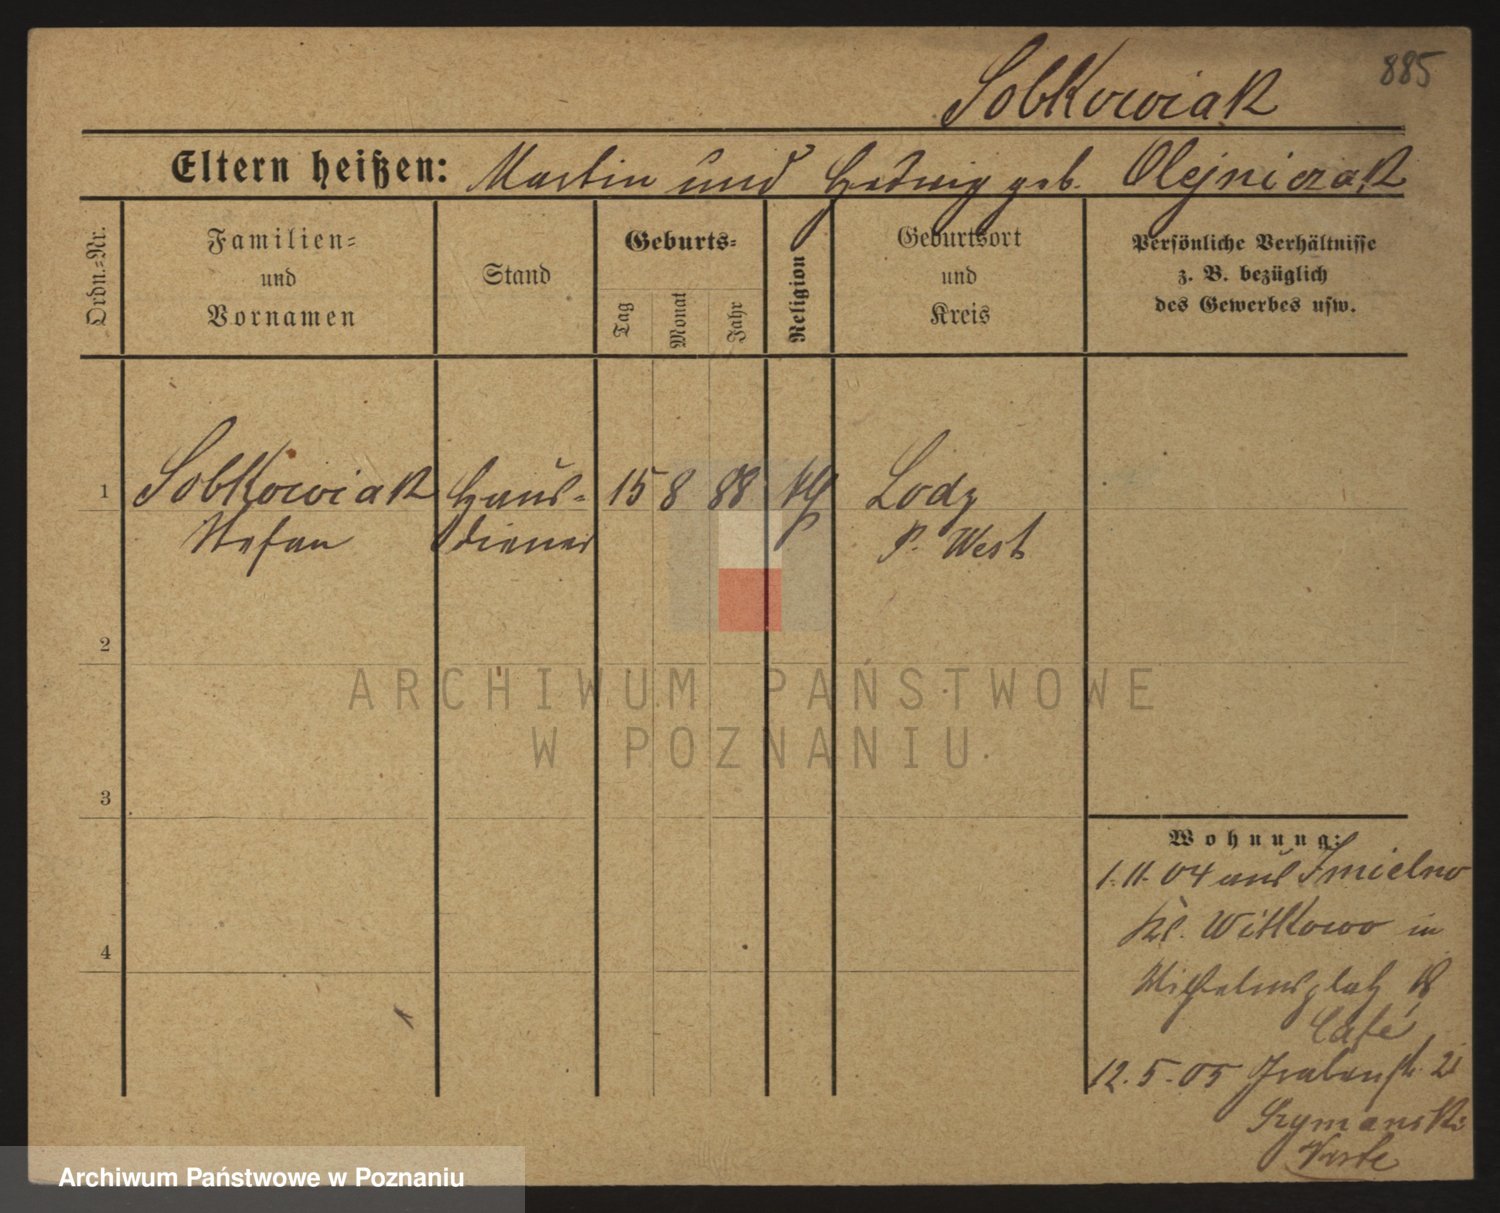 885
Sobkowiak
Eltern heißen: Martin und Hedwig geb. Olejniczak
Ordn.=Nr.
Familien=
und
Vornamen
Stand
Geburts=
Tag
Monat
Jahr
Religion
Geburtsort
und
Kreis
Persönliche Verhältnisse
z. B. bezüglich
des Gewerbes usw.
1 Sobkowiak Haus- 15 8 88 kth Lodz
Stefan diener P. West
2
ARCHIWUM PAŃSTWOWE
W POZNANIU
3
Wohnung:
1.11.04 aus Imielno
Kr. Witkowo in
4
Wilhelmsplatz 18
Café
12.5.05 Grabenstr. 21
Szymanski
Archiwum Państwowe w Poznaniu